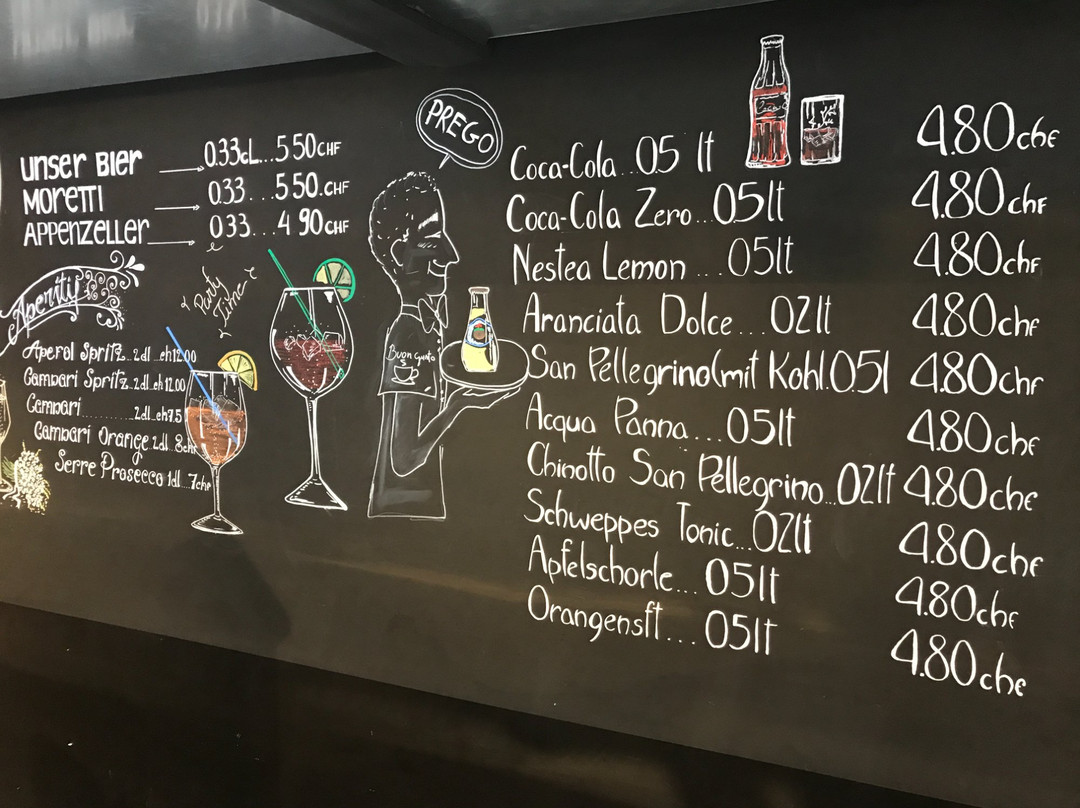 unser Bier 0.33cL...5 50CHF
MoreTTI 0.33...5 50.CHF
APPENZELLER 033...4 90CHF
Aperity
Party
Time
Aperol Spritz..2dl..ch12.00
Campari Spritz..2dl.ch 12.00
Campari.........2dl..ch7.5
Campari Orange.2dl..8chf
Serre Prosecco 1dl..7chf
PREGO
Buon Gusto
Coca-Cola...05 lt 4.80chf
Coca-Cola Zero...05lt 4.80chf
Nestea Lemon ...05lt 4.80chf
Aranciata Dolce...02lt 4.80chf
San Pellegrino(mit Kohl.0.5l 4.80chf
Acqua Panna...05lt 4.80chf
Chinotto San Pellegrino...02lt 4.80chf
Schweppes Tonic...02lt 4.80chf
Apfelschorle...05lt 4.80chf
Orangensft...05lt 4.80chf